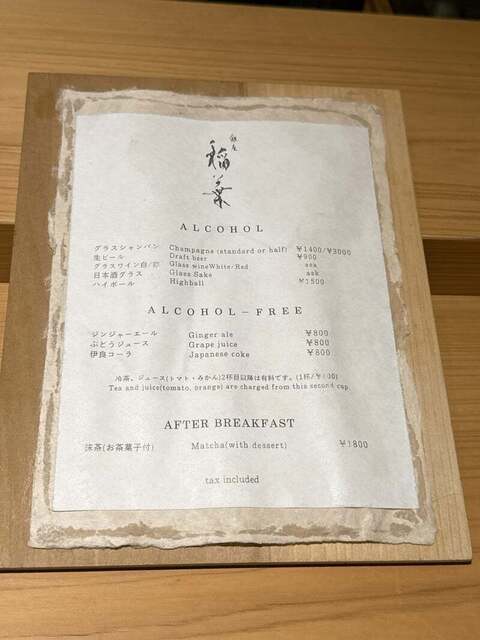 銀座
稲葉
ALCOHOL
グラスシャンパン Champagne (standard or half) ¥1400/¥3000
生ビール Draft beer ¥900
グラスワイン白/赤 Glass wineWhite/Red ask
日本酒グラス Glass Sake ask
ハイボール Highball ¥1500
ALCOHOL-FREE
ジンジャーエール Ginger ale ¥800
ぶどうジュース Grape juice ¥800
伊良コーラ Japanese coke ¥800
冷茶、ジュース(トマト・みかん)2杯目以降は有料です。(1杯/
Tea and juice(tomato, orange) are charged from this second cup.
AFTER BREAKFAST
抹茶(お茶菓子付) Matcha(with dessert) ¥1800
tax included